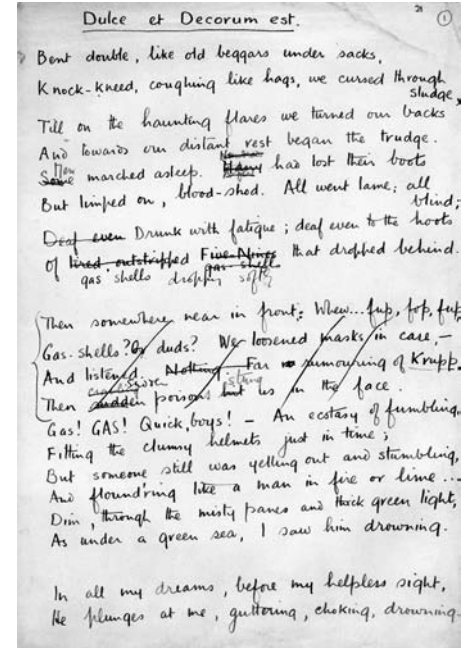 Dulce et Decorum est.
①
Bent double, like old beggars under sacks,
Knock-kneed, coughing like hags, we cursed through
sludge,
Till on the haunting flares we turned our backs
And towards our distant rest began the trudge.
Men
Some marched asleep. Many had lost their boots
But limped on, blood-shod. All went lame; all
blind;
Deaf even Drunk with fatigue; deaf even to the hoots
Of tired outstripped Five-Nines that dropped behind.
gas shell
gas shells dropping softly
Then somewhere near in front: Whew... fup, fop, fup,
Gas-shells? Or duds? We loosened masks in case, —
And listened. Nothing. Far rumouring of Krupp.
stung
Then sudden poisons us in the face.
Gas! GAS! Quick, boys! — An ecstasy of fumbling,
Fitting the clumsy helmets just in time;
But someone still was yelling out and stumbling,
And flound'ring like a man in fire or lime...
Dim, through the misty panes and thick green light,
As under a green sea, I saw him drowning.
In all my dreams, before my helpless sight,
He plunges at me, guttering, choking, drowning.